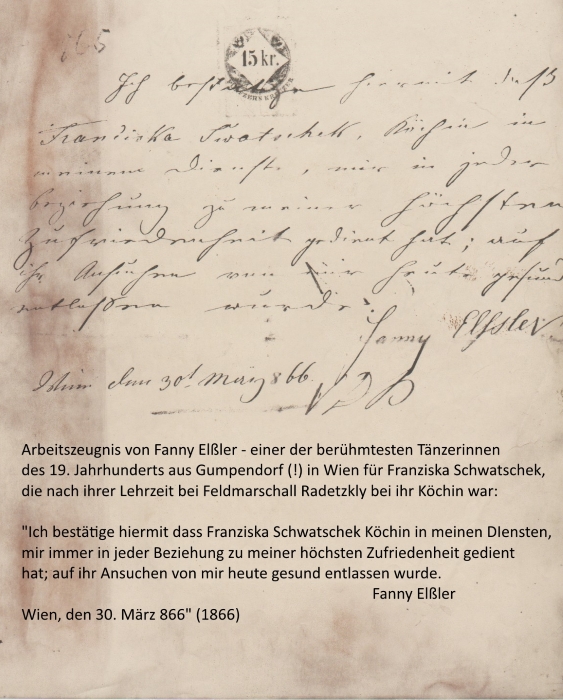 165
15 kr.
Ich bestättige hiermit daß
Franciska Swotschek, Köchin in
meinem Dienste, mir in jeder
beziehung zu meiner höchsten
Zufriedenheit gedient hat; auf
ihr Ansuchen von mir heute gesund
entlaßen wurde.
Fanny Elßler
Wien den 30t März 866.
Arbeitszeugnis von Fanny Elßler - einer der berühmtesten Tänzerinnen
des 19. Jahrhunderts aus Gumpendorf (!) in Wien für Franziska Schwatschek,
die nach ihrer Lehrzeit bei Feldmarschall Radetzkly bei ihr Köchin war:
"Ich bestätige hiermit dass Franziska Schwatschek Köchin in meinen DIensten,
mir immer in jeder Beziehung zu meiner höchsten Zufriedenheit gedient
hat; auf ihr Ansuchen von mir heute gesund entlassen wurde.
Fanny Elßler
Wien, den 30. März 866" (1866)